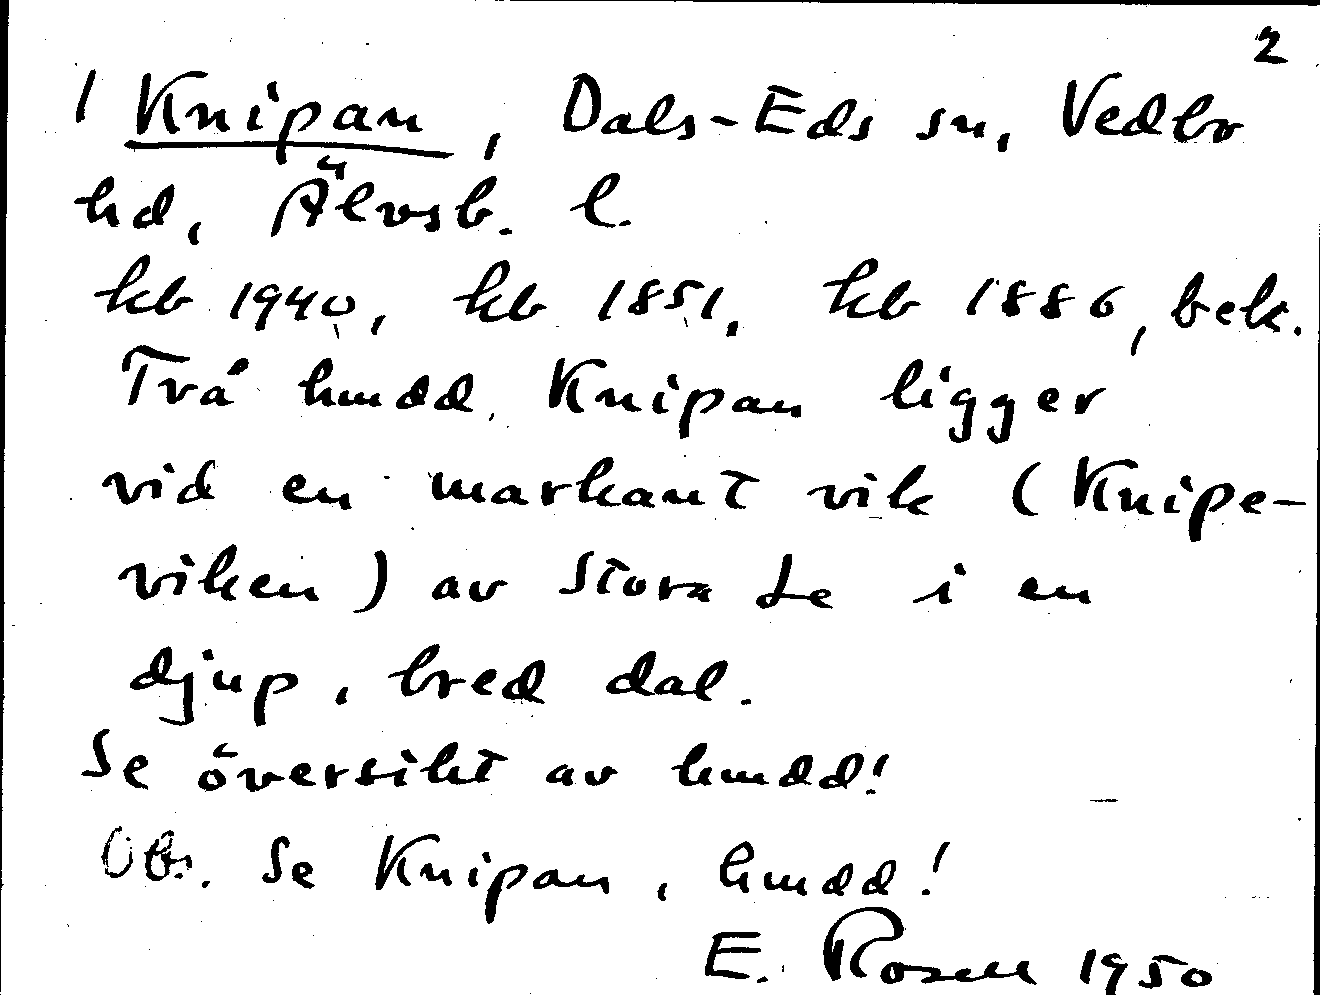 2
1 Knipan, Dals-Eds sn, Vedbo
hd, Älvsb. l.
kb 1940, kb 1851, kb 1886, bek.
Två hmdd. Knipan ligger
vid en markant vik (Knipe-
viken) av Stora Le i en
djup, bred dal.
Se översikt av hmdd!
Obs. Se Knipan, hmdd!
E. Rosell 1950